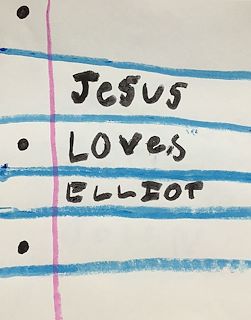 Jesus
Loves
ELLIOT